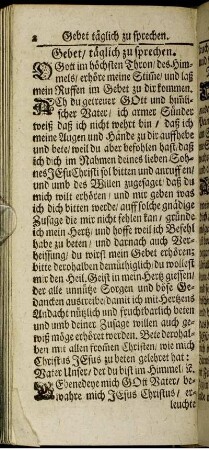 2 Gebet täglich zu sprechen.
Gebet / täglich zu sprechen.
O Gott im höchsten Thron / des Him-
mels / erhöre meine Stim̃e / und laß
mein Ruffen im Gebet zu dir kommen.
Ach du getreuer GOtt und him̃li-
scher Vater / ich armer Sünder
weiß daß ich nicht wehrt bin / daß ich
meine Augen und Hände zu dir auffhebe
und bete / weil du aber befohlen hast / daß
ich dich im Nahmen deines lieben Soh-
nes JEsu Christi sol bitten und anruffen /
und umb des Willen zugesaget / daß du
mich wilt erhören / und mir geben was
ich dich bitten werde / auff solche gnädige
Zusage die mir nicht fehlen kan / gründe
ich mein Hertz / und hoffe weil ich Befehl
habe zu beten / und darnach auch Ver-
heissung / du wirst mein Gebet erhören;
bitte derohalben demühtiglich / du wollest
mir den Heil. Geist in mein Hertz giessen /
der alle unnütze Sorgen und böse Ge-
dancken austreibe / damit ich mit Hertzens
Andacht nützlich und fruchtbarlich beten
und umb deiner Zusage willen auch ge-
wiß möge erhöret werden. Bete derohal-
ben mit allen from̃en Christen / wie mich
Christus JEsus zu beten gelehret hat:
Vater Unser / der du bist im Himmel / ⁊c.
GEbenedeye mich GOtt Vater / be-
wahre mich JEsus Christus / er-
leuchte